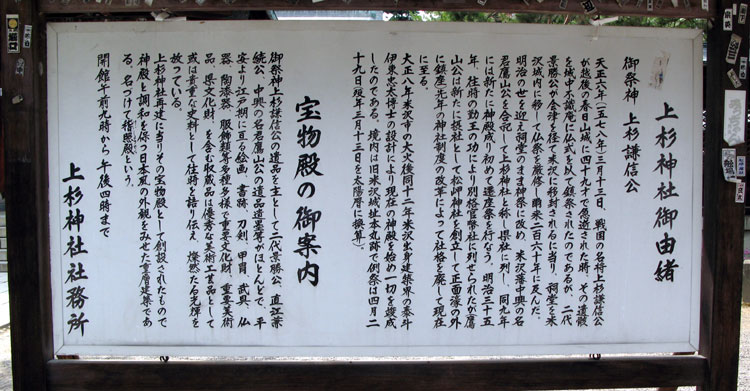 上杉神社御由緒
御祭神 上杉謙信公
天正六年(一五七八年)三月十三日、戦国の名将上杉謙信公
が越後の春日山城に四十九才で急逝された時、その遺骸
を城中不識庵に仏式を以て鎮祭されたのであるが、二代
景勝公が会津を経て米沢に移封されるに当り、祠堂を米
沢城内に移して仏祭を厳修し爾来二百六十年に及んだ。
明治の世を迎え祠堂のまま神祭に改め、米沢藩中興の名
君鷹山公を合祀して上杉神社と称し県社に列し、同九年
には新たに神殿成り初めて遷座祭を行なう。明治三十五
年、往時の勤王の功により別格官幣社に列せられたが鷹
山公は新たに摂社として松岬神社を創立して正面濠の外
に鎮座、先年の神社制度の改革によって社格を廃して現在
に至る。
大正八年米沢市の大火後同十二年米沢出身建築界の泰斗
伊東忠太博士の設計により現在の神殿を始め一切を竣成
したのである。境内は旧米沢城址本丸跡で例祭は四月二
十九日(旧年三月十三日を太陽暦に換算)。
宝物殿の御案内
御祭神上杉謙信公の遺品を主として二代景勝公、直江兼
続公、中興の名君鷹山公の遺品遺墨等がほとんどで、平
安より江戸期に亘る絵画、書跡、刀剣、甲冑、武具、仏
器、陶漆器、服飾類等多種多様で重要文化財、重要美術
品、県文化財、を含む収蔵品は優秀な美術工芸品として
或は貴重な史料として往時を語り伝え、燦然たる光輝を
放っている。
上杉神社再建に当りその宝物殿として創設されたもので
神殿と調和を保つ日本風の外観をみせた重層建築であ
る。名づけて稽照殿という。
開館午前九時から午後四時まで
上杉神社社務所